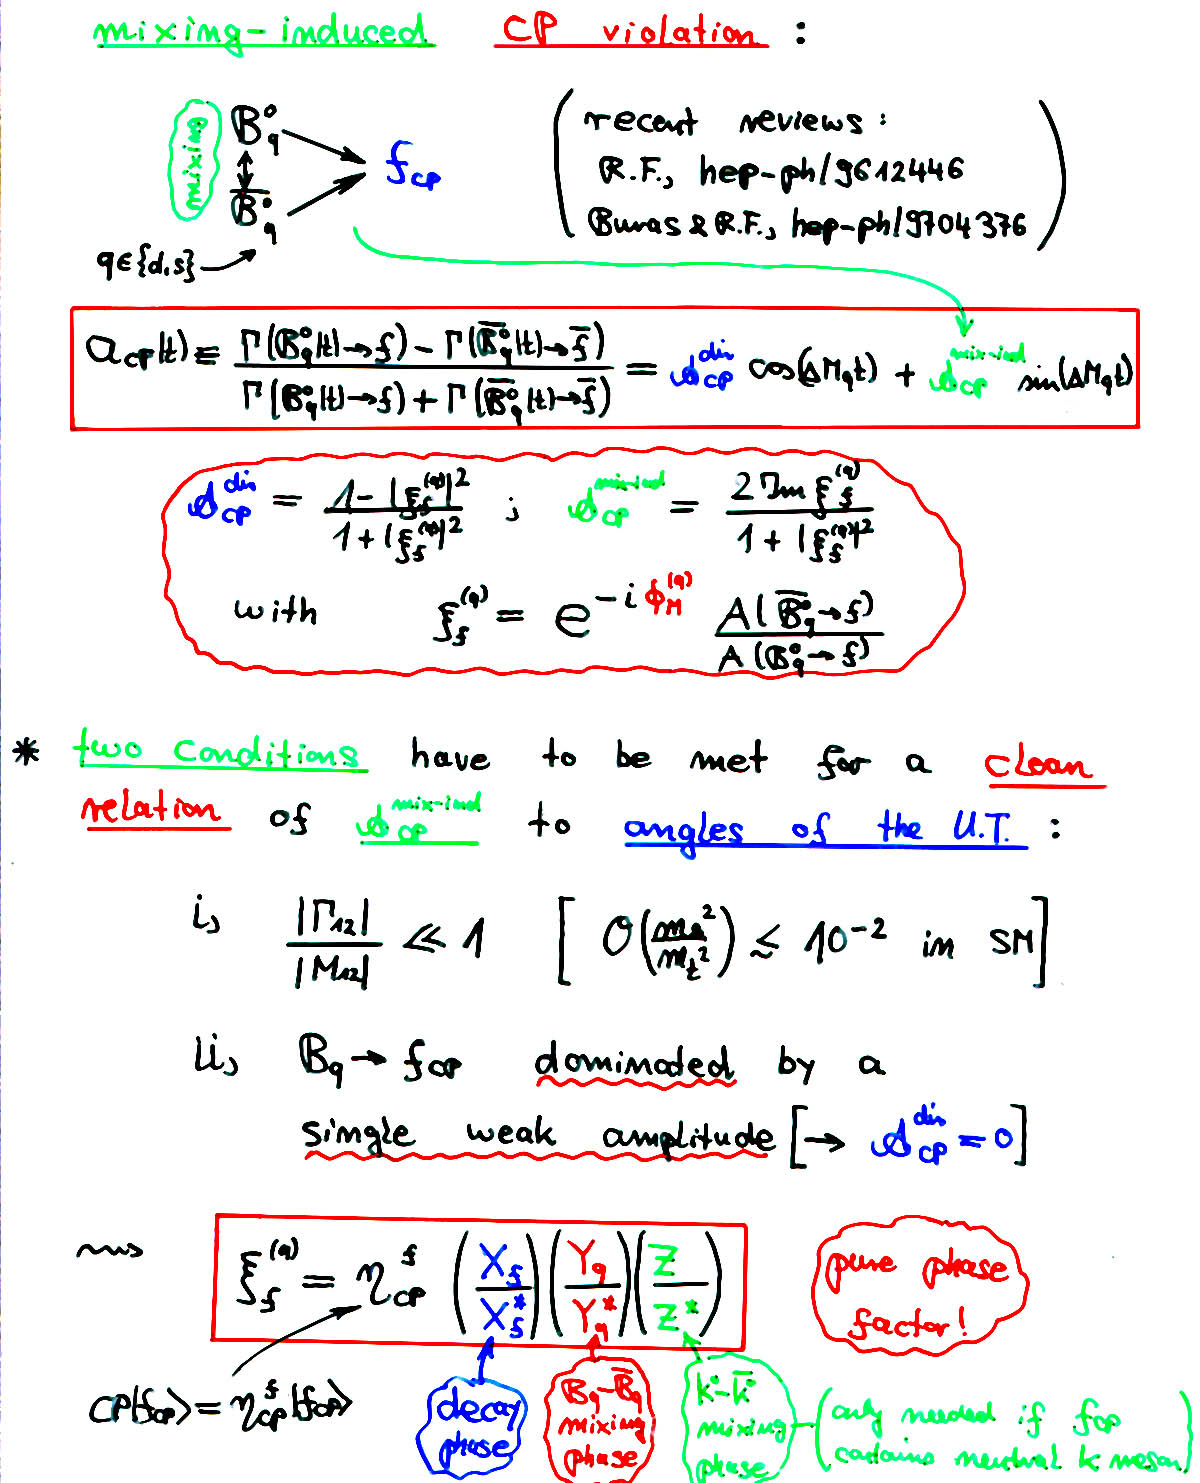 mixing-induced CP violation :
mixing
B⁰_q
B̅⁰_q
f_CP
q∈{d,s}
(recent reviews:
R.F., hep-ph/9612446
Buras & R.F., hep-ph/9704376)
a_CP(t) ≡ [Γ(B⁰_q(t)→f) − Γ(B̅⁰_q(t)→f̅)] / [Γ(B⁰_q(t)→f) + Γ(B̅⁰_q(t)→f̅)] = 𝒜_CP^dir cos(ΔM_q t) + 𝒜_CP^mix-ind sin(ΔM_q t)
𝒜_CP^dir = (1 − |ξ_f^(q)|²) / (1 + |ξ_f^(q)|²) ; 𝒜_CP^mix-ind = 2 Im ξ_f^(q) / (1 + |ξ_f^(q)|²)
with ξ_f^(q) = e^(−i ϕ_M^(q)) A(B̅⁰_q→f) / A(B⁰_q→f)
* two conditions have to be met for a clean
relation of 𝒜_CP^mix-ind to angles of the U.T. :
i, |Γ₁₂| / |M₁₂| ≪ 1 [O(m_b²/m_t²) ≲ 10⁻² in SM]
ii, B_q → f_CP dominated by a
single weak amplitude [→ 𝒜_CP^dir = 0]
⇝ ξ_f^(q) = η_CP^f (X_f/X_f*) (Y_q/Y_q*) (Z/Z*)
pure phase
factor!
CP|f_CP⟩ = η_CP^f |f_CP⟩
decay
phase
B_q-B̅_q
mixing
phase
K⁰-K̅⁰
mixing
phase
(only needed if f_CP
contains neutral K meson)